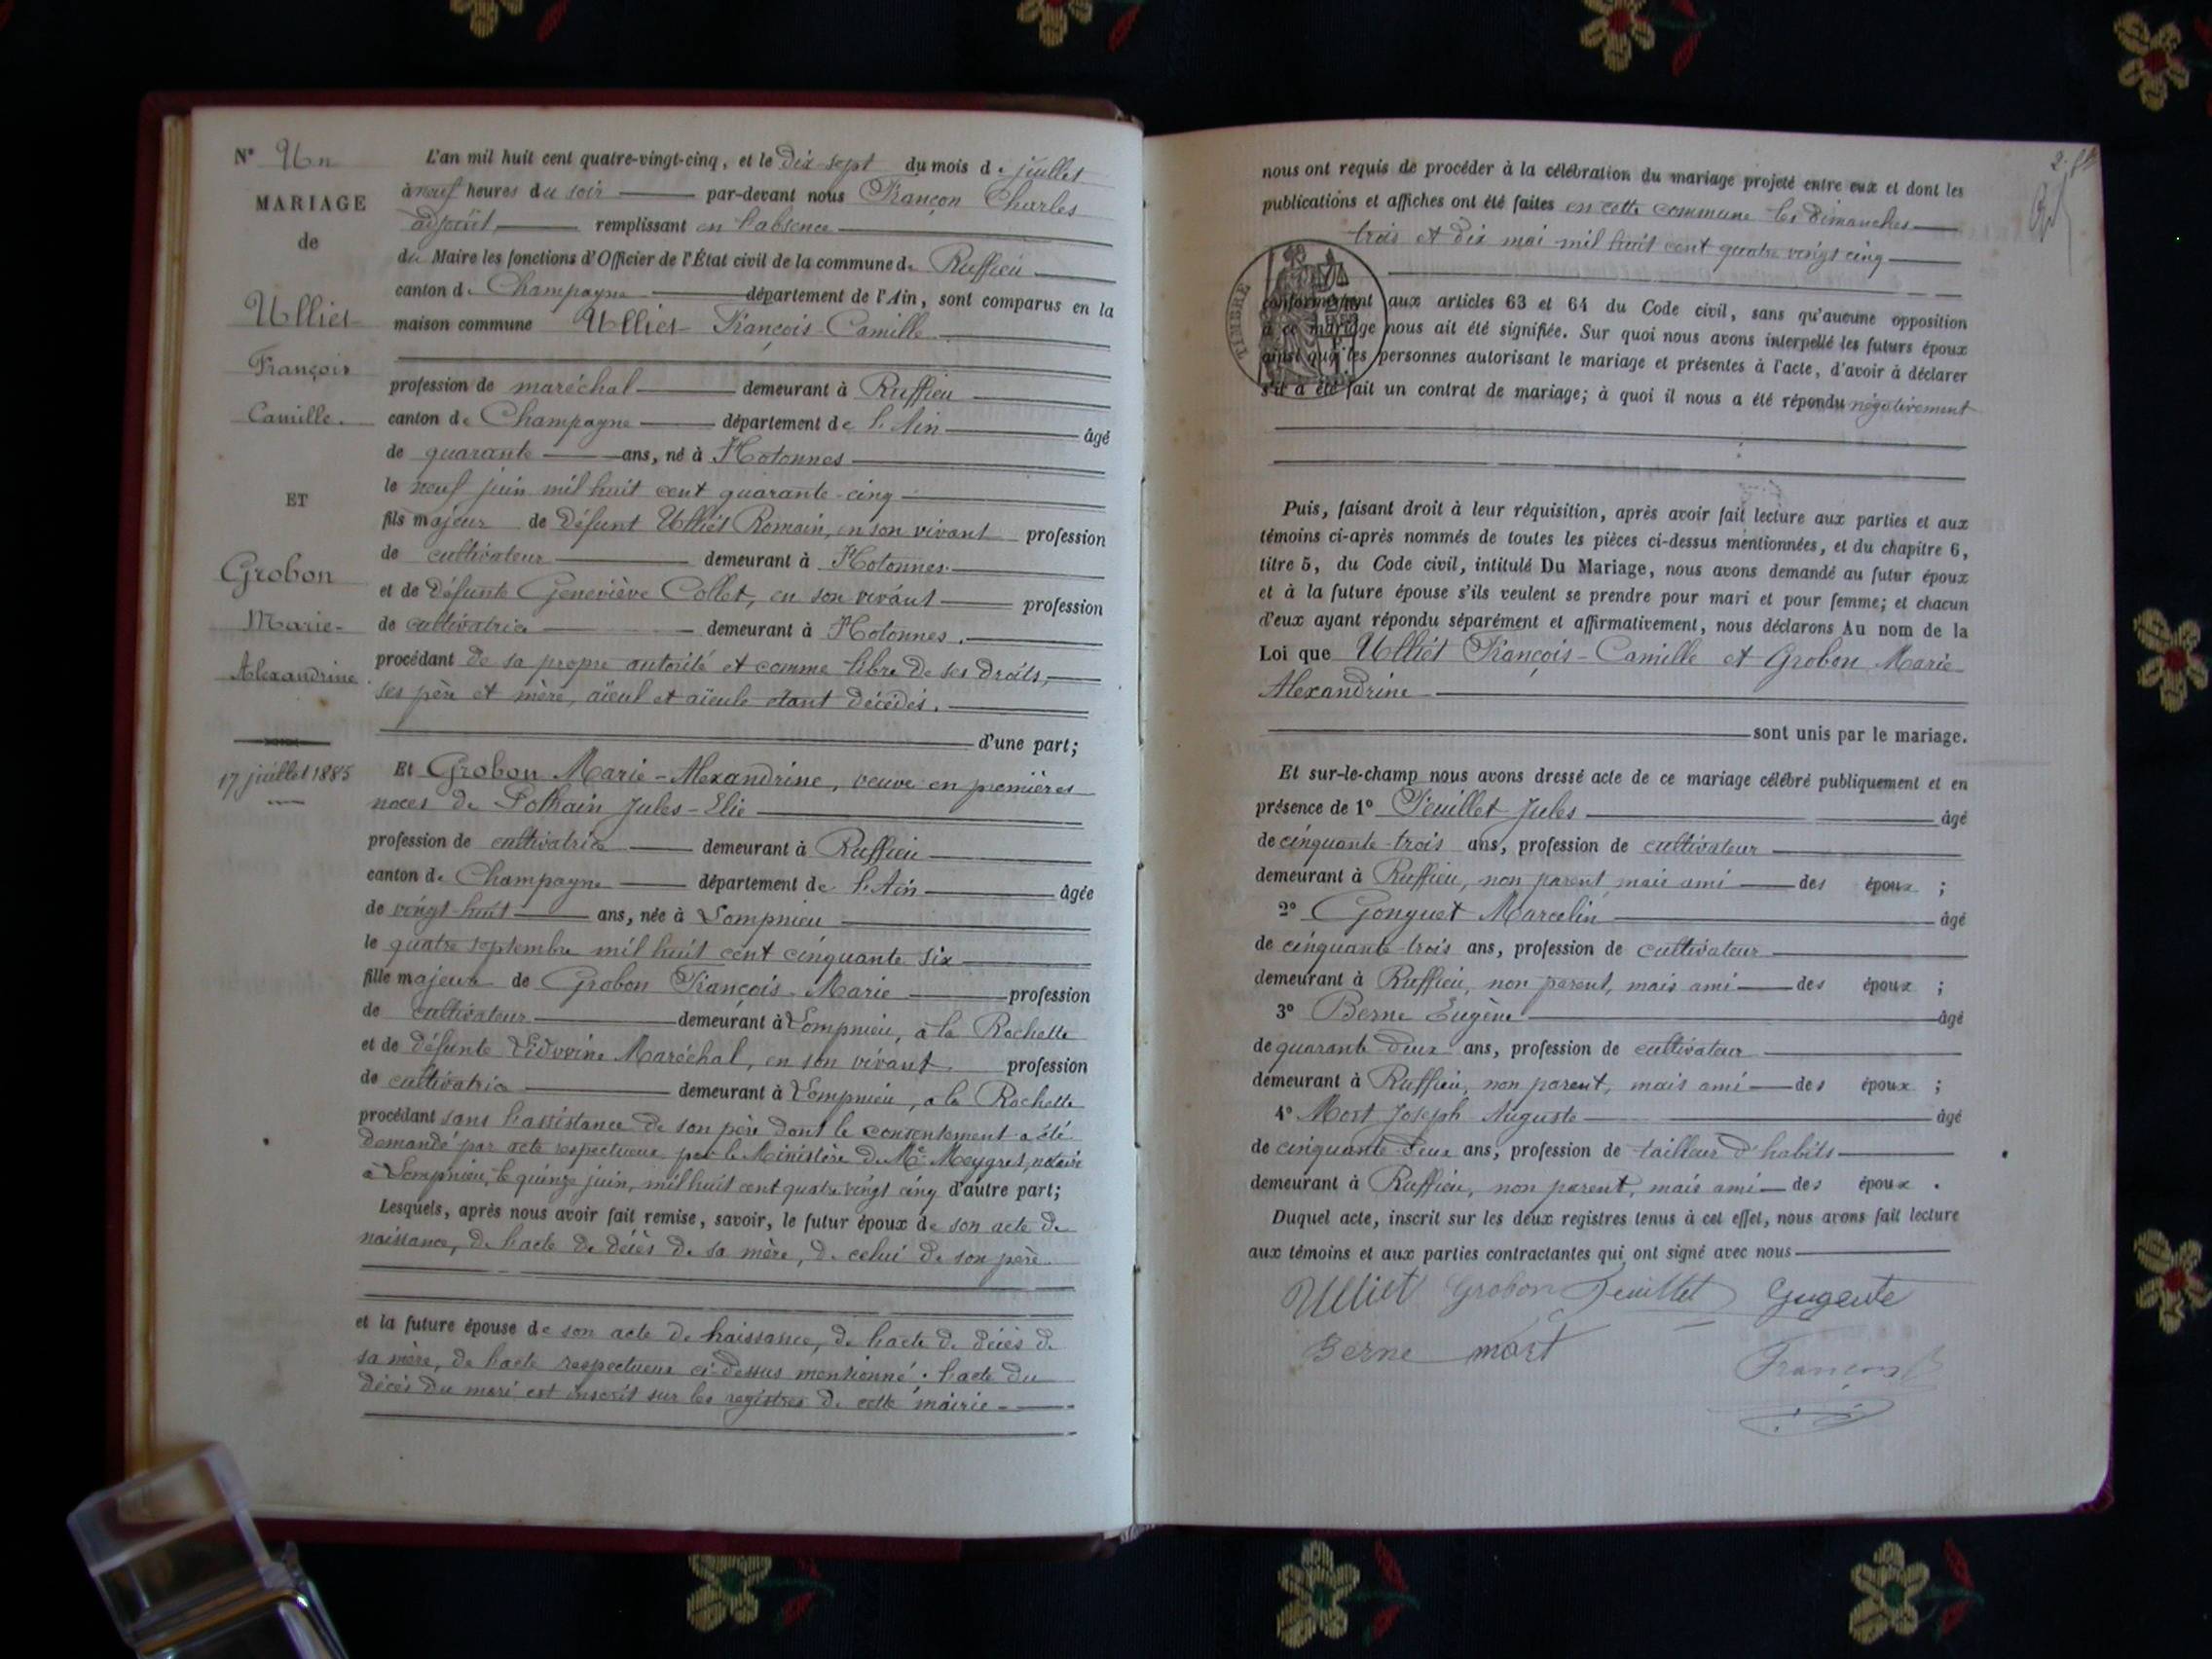 N° Un
MARIAGE
de
Ulliet
François
Camille.
ET
Grobon
Marie-
Alexandrine
17 juillet 1885
L'an mil huit cent quatre-vingt-cinq, et le dix-sept du mois de juillet
à neuf heures du soir par-devant nous Françon Charles
adjoint remplissant en l'absence
du Maire les fonctions d'Officier de l'État civil de la commune de Ruffieu
canton de Champagne département de l'Ain, sont comparus en la
maison commune Ulliet François-Camille
profession de maréchal demeurant à Ruffieu
canton de Champagne département de l'Ain âgé
de quarante ans, né à Hotonnes
le neuf juin mil huit cent quarante-cinq
fils majeur de défunt Ulliet Romain, en son vivant profession
de cultivateur demeurant à Hotonnes
et de défunte Geneviève Collet, en son vivant profession
de cultivatrice demeurant à Hotonnes.
procédant de sa propre autorité et comme libre de ses droits,
ses père et mère, aïeul et aïeule étant décédés.
d'une part;
Et Grobon Marie-Alexandrine, veuve en premières
noces de Pothain Jules-Elie
profession de cultivatrice demeurant à Ruffieu
canton de Champagne département de l'Ain âgée
de vingt-huit ans, née à Lompnieu
le quatre septembre mil huit cent cinquante six
fille majeure de Grobon François-Marie profession
de cultivateur demeurant à Lompnieu, à la Rochette
et de défunte Lidvoine Maréchal, en son vivant profession
de cultivatrice demeurant à Lompnieu, à la Rochette
procédant sans l'assistance de son père dont le consentement a été
demandé par acte respectueux par le Ministère de Me Meygret, notaire
à Lompnieu, le quinze juin, mil huit cent quatre vingt cinq d'autre part;
Lesquels, après nous avoir fait remise, savoir, le futur époux de son acte de
naissance, de l'acte de décès de sa mère, de celui de son père
et la future épouse de son acte de naissance, de l'acte de décès de
sa mère, de l'acte respectueux ci-dessus mentionné. l'acte du
décès du mari est inscrit sur les registres de cette mairie
nous ont requis de procéder à la célébration du mariage projeté entre eux et dont les
publications et affiches ont été faites en cette commune les dimanches
trois et dix mai mil huit cent quatre vingt cinq
TIMBRE
conformément aux articles 63 et 64 du Code civil, sans qu'aucune opposition
à ce mariage nous ait été signifiée. Sur quoi nous avons interpellé les futurs époux
ainsi que les personnes autorisant le mariage et présentes à l'acte, d'avoir à déclarer
s'il a été fait un contrat de mariage; à quoi il nous a été répondu négativement
Puis, faisant droit à leur réquisition, après avoir fait lecture aux parties et aux
témoins ci-après nommés de toutes les pièces ci-dessus mentionnées, et du chapitre 6,
titre 5, du Code civil, intitulé Du Mariage, nous avons demandé au futur époux
et à la future épouse s'ils veulent se prendre pour mari et pour femme; et chacun
d'eux ayant répondu séparément et affirmativement, nous déclarons Au nom de la
Loi que Ulliet François-Camille et Grobon Marie-
Alexandrine
sont unis par le mariage.
Et sur-le-champ nous avons dressé acte de ce mariage célébré publiquement et en
présence de 1° Feuillet Jules âgé
de cinquante-trois ans, profession de cultivateur
demeurant à Ruffieu, non parent mais ami des époux ;
2° Gonguet Marcelin âgé
de cinquante-trois ans, profession de cultivateur
demeurant à Ruffieu, non parent, mais ami des époux ;
3° Berne Eugène âgé
de quarante deux ans, profession de cultivateur
demeurant à Ruffieu, non parent, mais ami des époux ;
4° Mort Joseph Auguste âgé
de cinquante deux ans, profession de tailleur d'habits
demeurant à Ruffieu, non parent, mais ami des époux .
Duquel acte, inscrit sur les deux registres tenus à cet effet, nous avons fait lecture
aux témoins et aux parties contractantes qui ont signé avec nous
Ulliet Grobon Feuillet
Berne mort
Françon